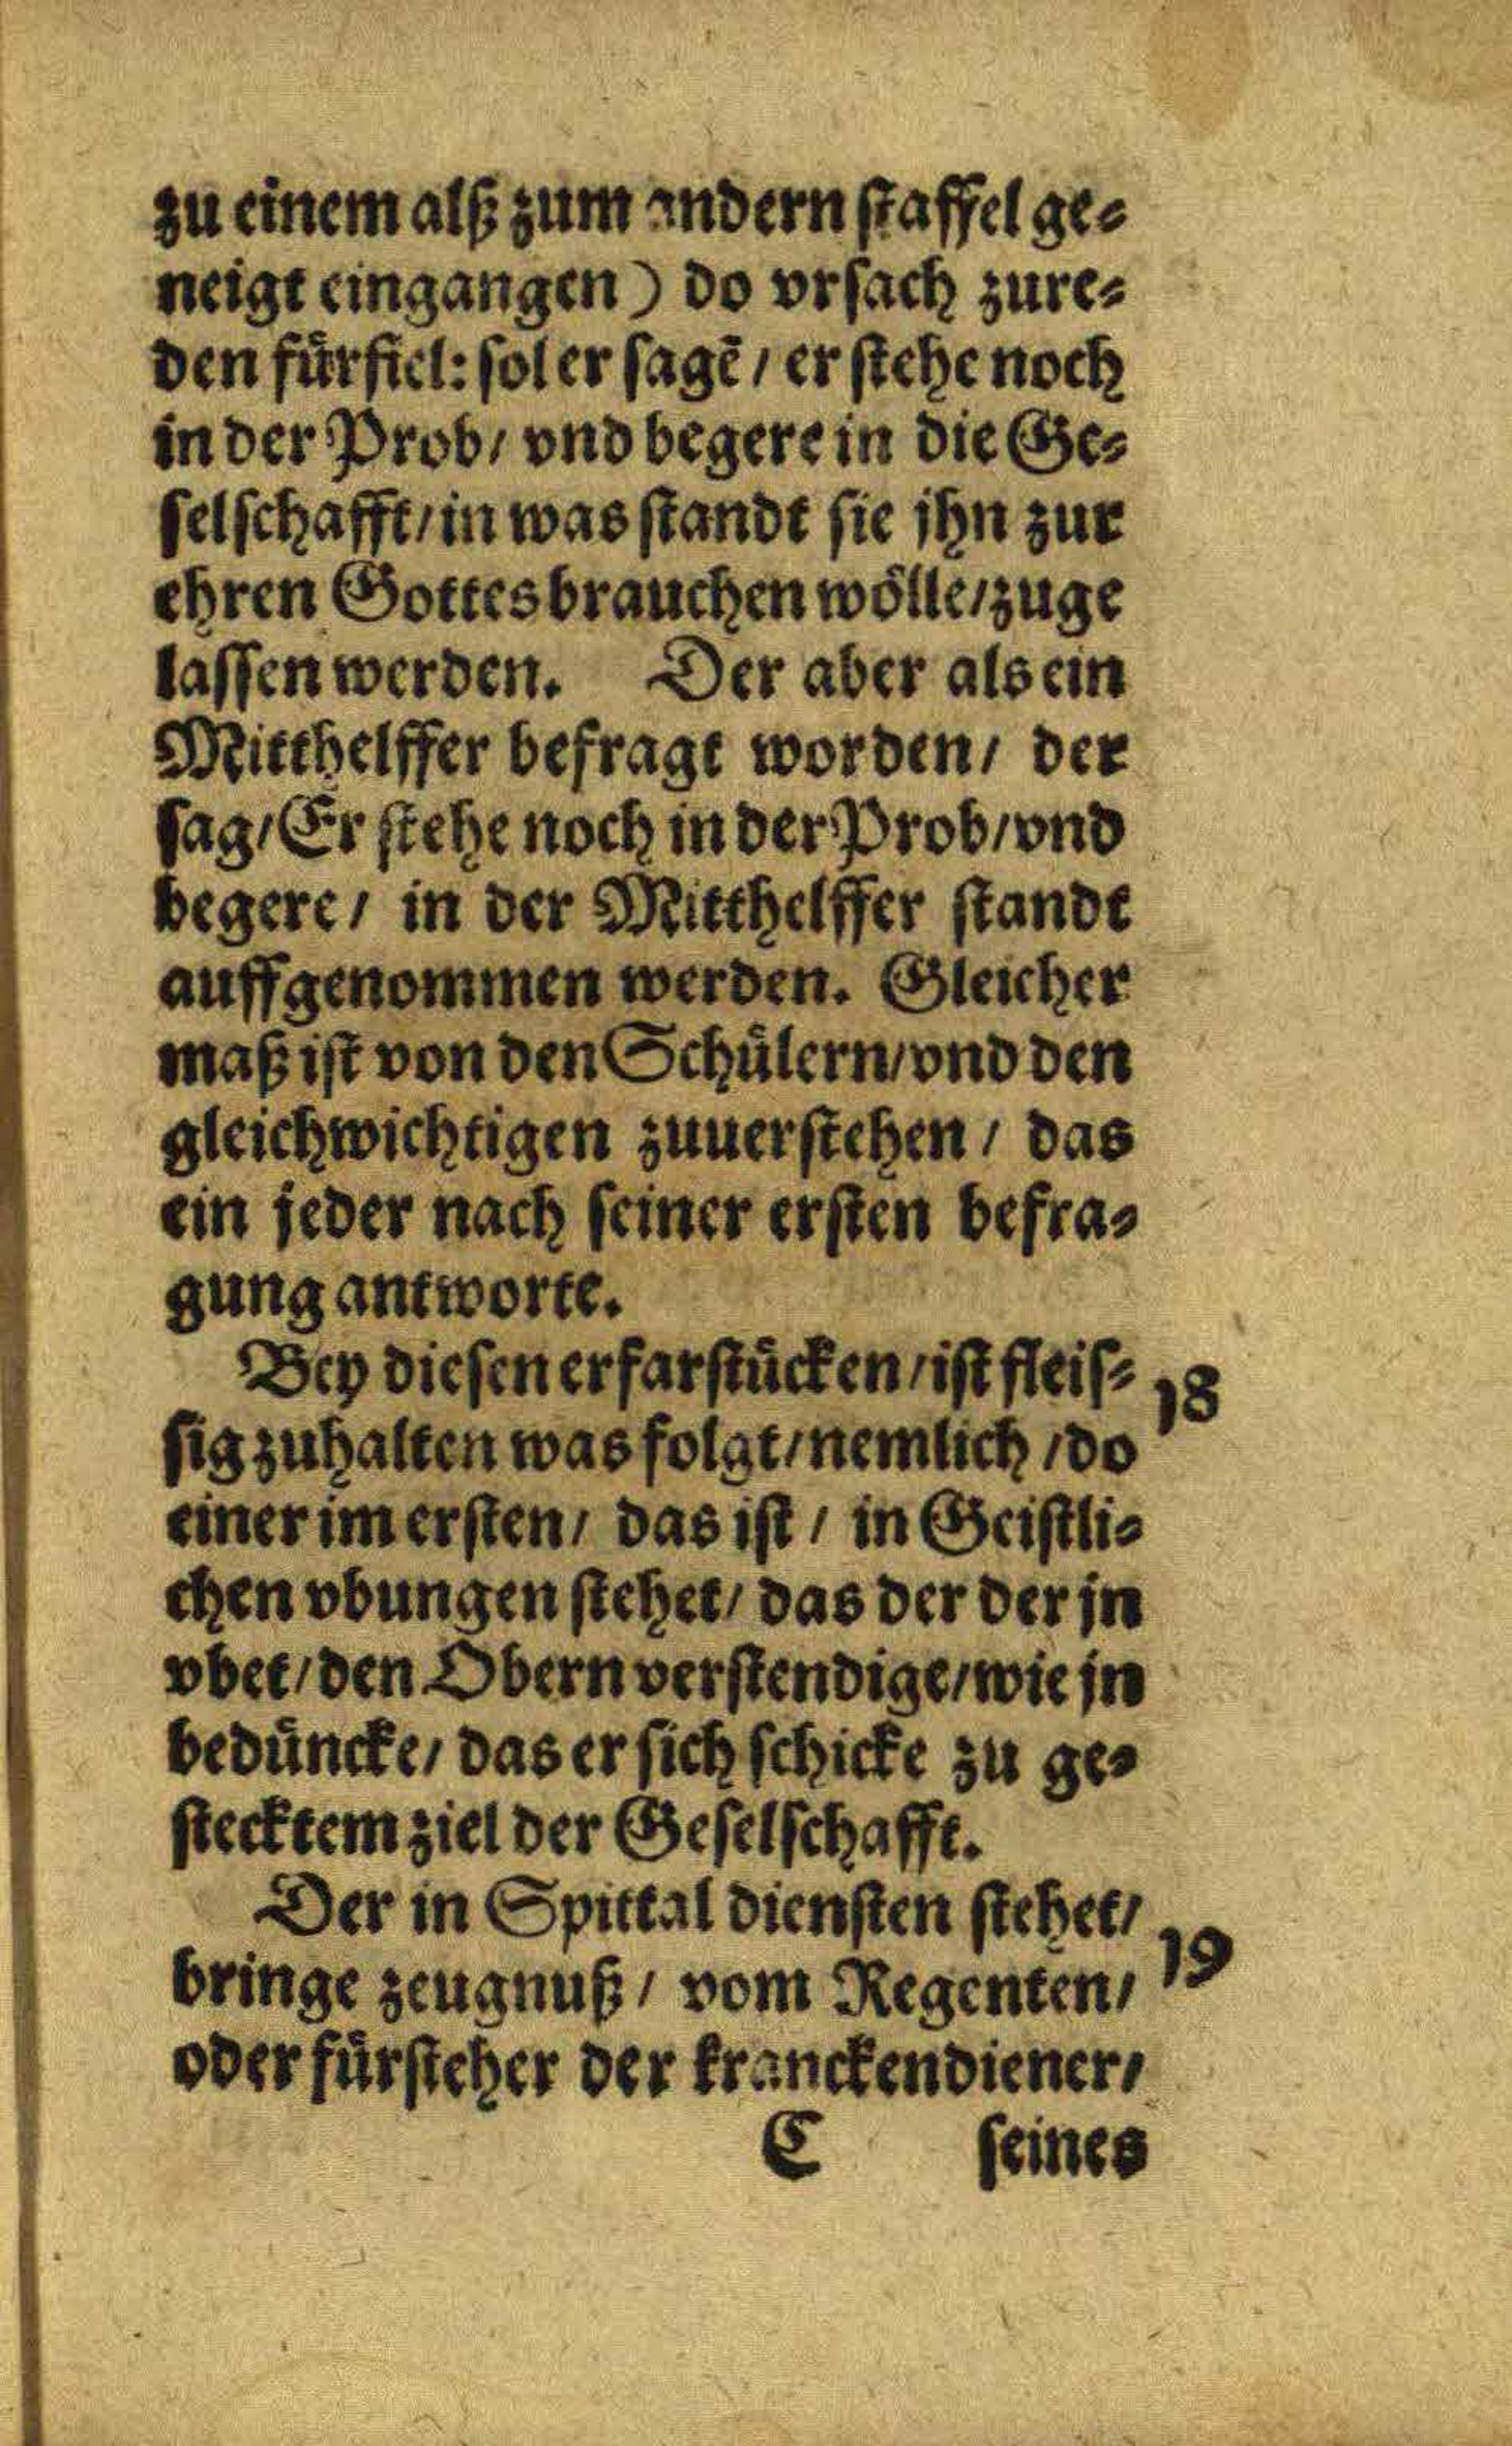 zu einem alß zum andern staffel ge⸗
neigt eingangen) do vrsach zure⸗
den fürfiel: sol er sagē / er stehe noch
in der Prob / vnd begere in die Ge⸗
selschafft / in was standt sie jhn zur
ehren Gottes brauchen wölle / zuge
lassen werden. Der aber als ein
Mitthelffer befragt worden / der
sag / Er stehe noch in der Prob / vnd
begere / in der Mitthelffer standt
auffgenommen werden. Gleicher
maß ist von den Schülern / vnd den
gleichwichtigen zuuerstehen / das
ein jeder nach seiner ersten befra⸗
gung antworte.
Bey diesen erfarstücken / ist fleis⸗ 18
sig zuhalten was folgt / nemlich / do
einer im ersten / das ist / in Geistli⸗
chen vbungen stehet / das der der jn
vbet / den Obern verstendige / wie jn
bedüncke / das er sich schicke zu ge⸗
stecktem ziel der Geselschafft.
Der in Spittal diensten stehet / 19
bringe zeugnuß / vom Regenten /
oder fürsteher der kranckendiener /
C seines